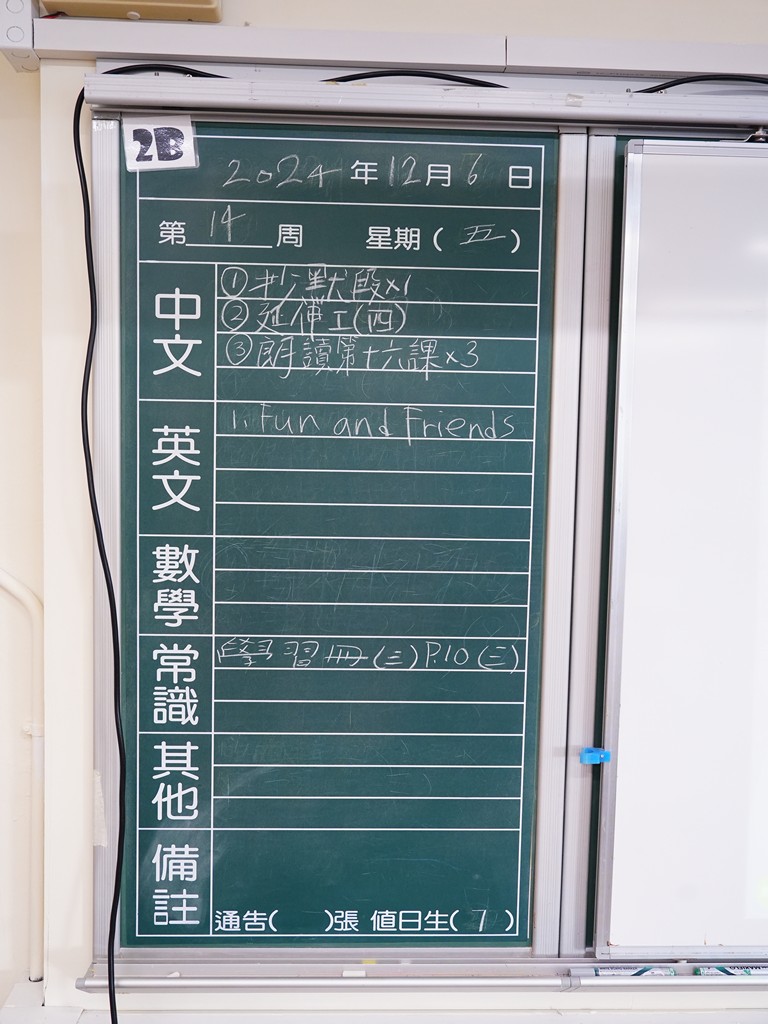 2B
2024年12月6日
第14周 星期(五)
中文
①抄默段×1
②延伸工(四)
③朗讀第十六課×3
英文
1. Fun and Friends
數學
常識
學習冊(三)P.10(三)
其他
備註
通告( )張 值日生(7)